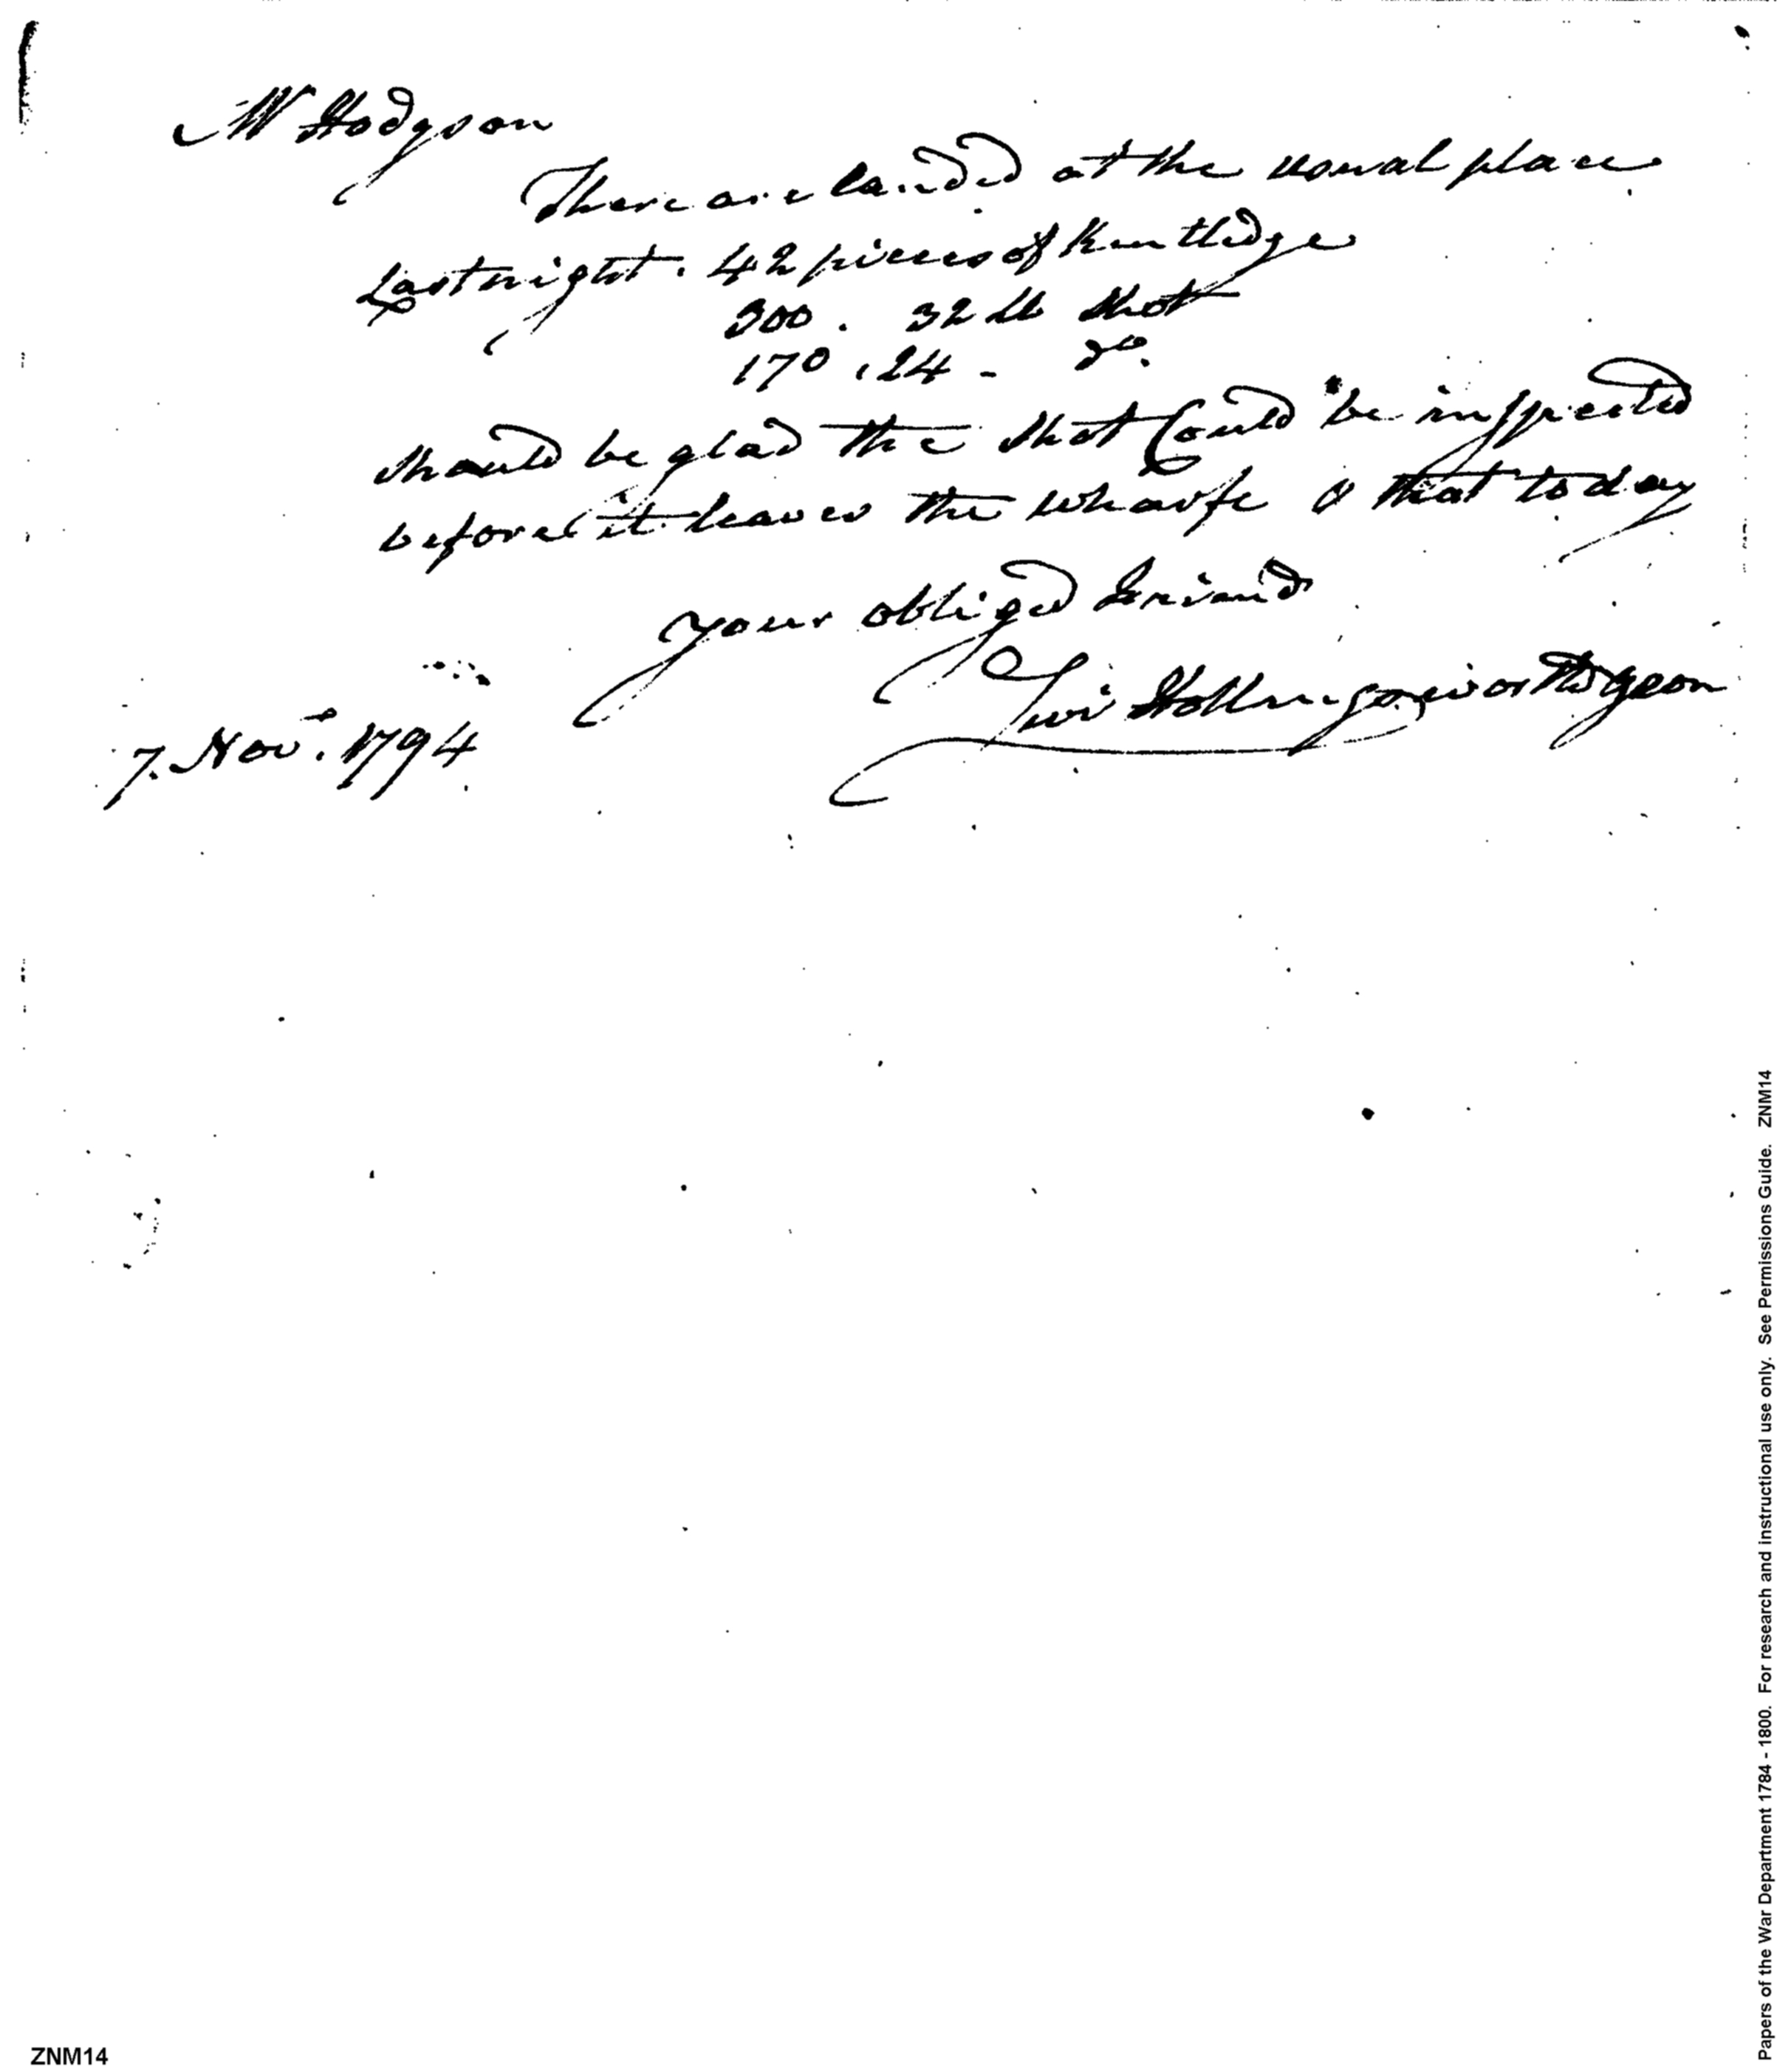 Mr Hodgson
There are landed at the usual place
Last night. 42 pieces of Kentledge
300. 32 lb shot
170. 24 - do.
should be glad the shot Could be inspected
before it leaves the wharfe & that to day
Your obliged Friend
Levi Hollingsworth & Son
7. Novr. 1794
Papers of the War Department 1784 - 1800. For research and instructional use only. See Permissions Guide. ZNM14
ZNM14